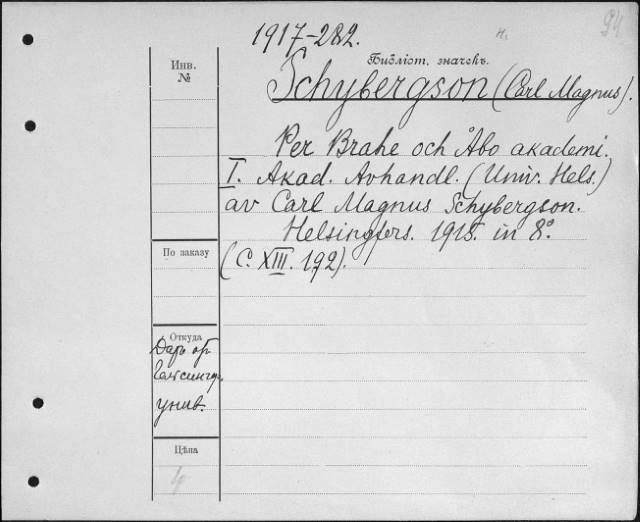 94
1917-282.
Инв.
№
Библіот. значекъ.
Schybergson (Carl Magnus).
Per Brahe och Åbo akademi.
I. Akad. Avhandl. (Univ. Hels.)
av Carl Magnus Schybergson.
Helsingfors. 1915. in 8º.
(C. XIII. 192).
По заказу
Откуда
Даръ от
Гельсингф.
унив.
Цѣна